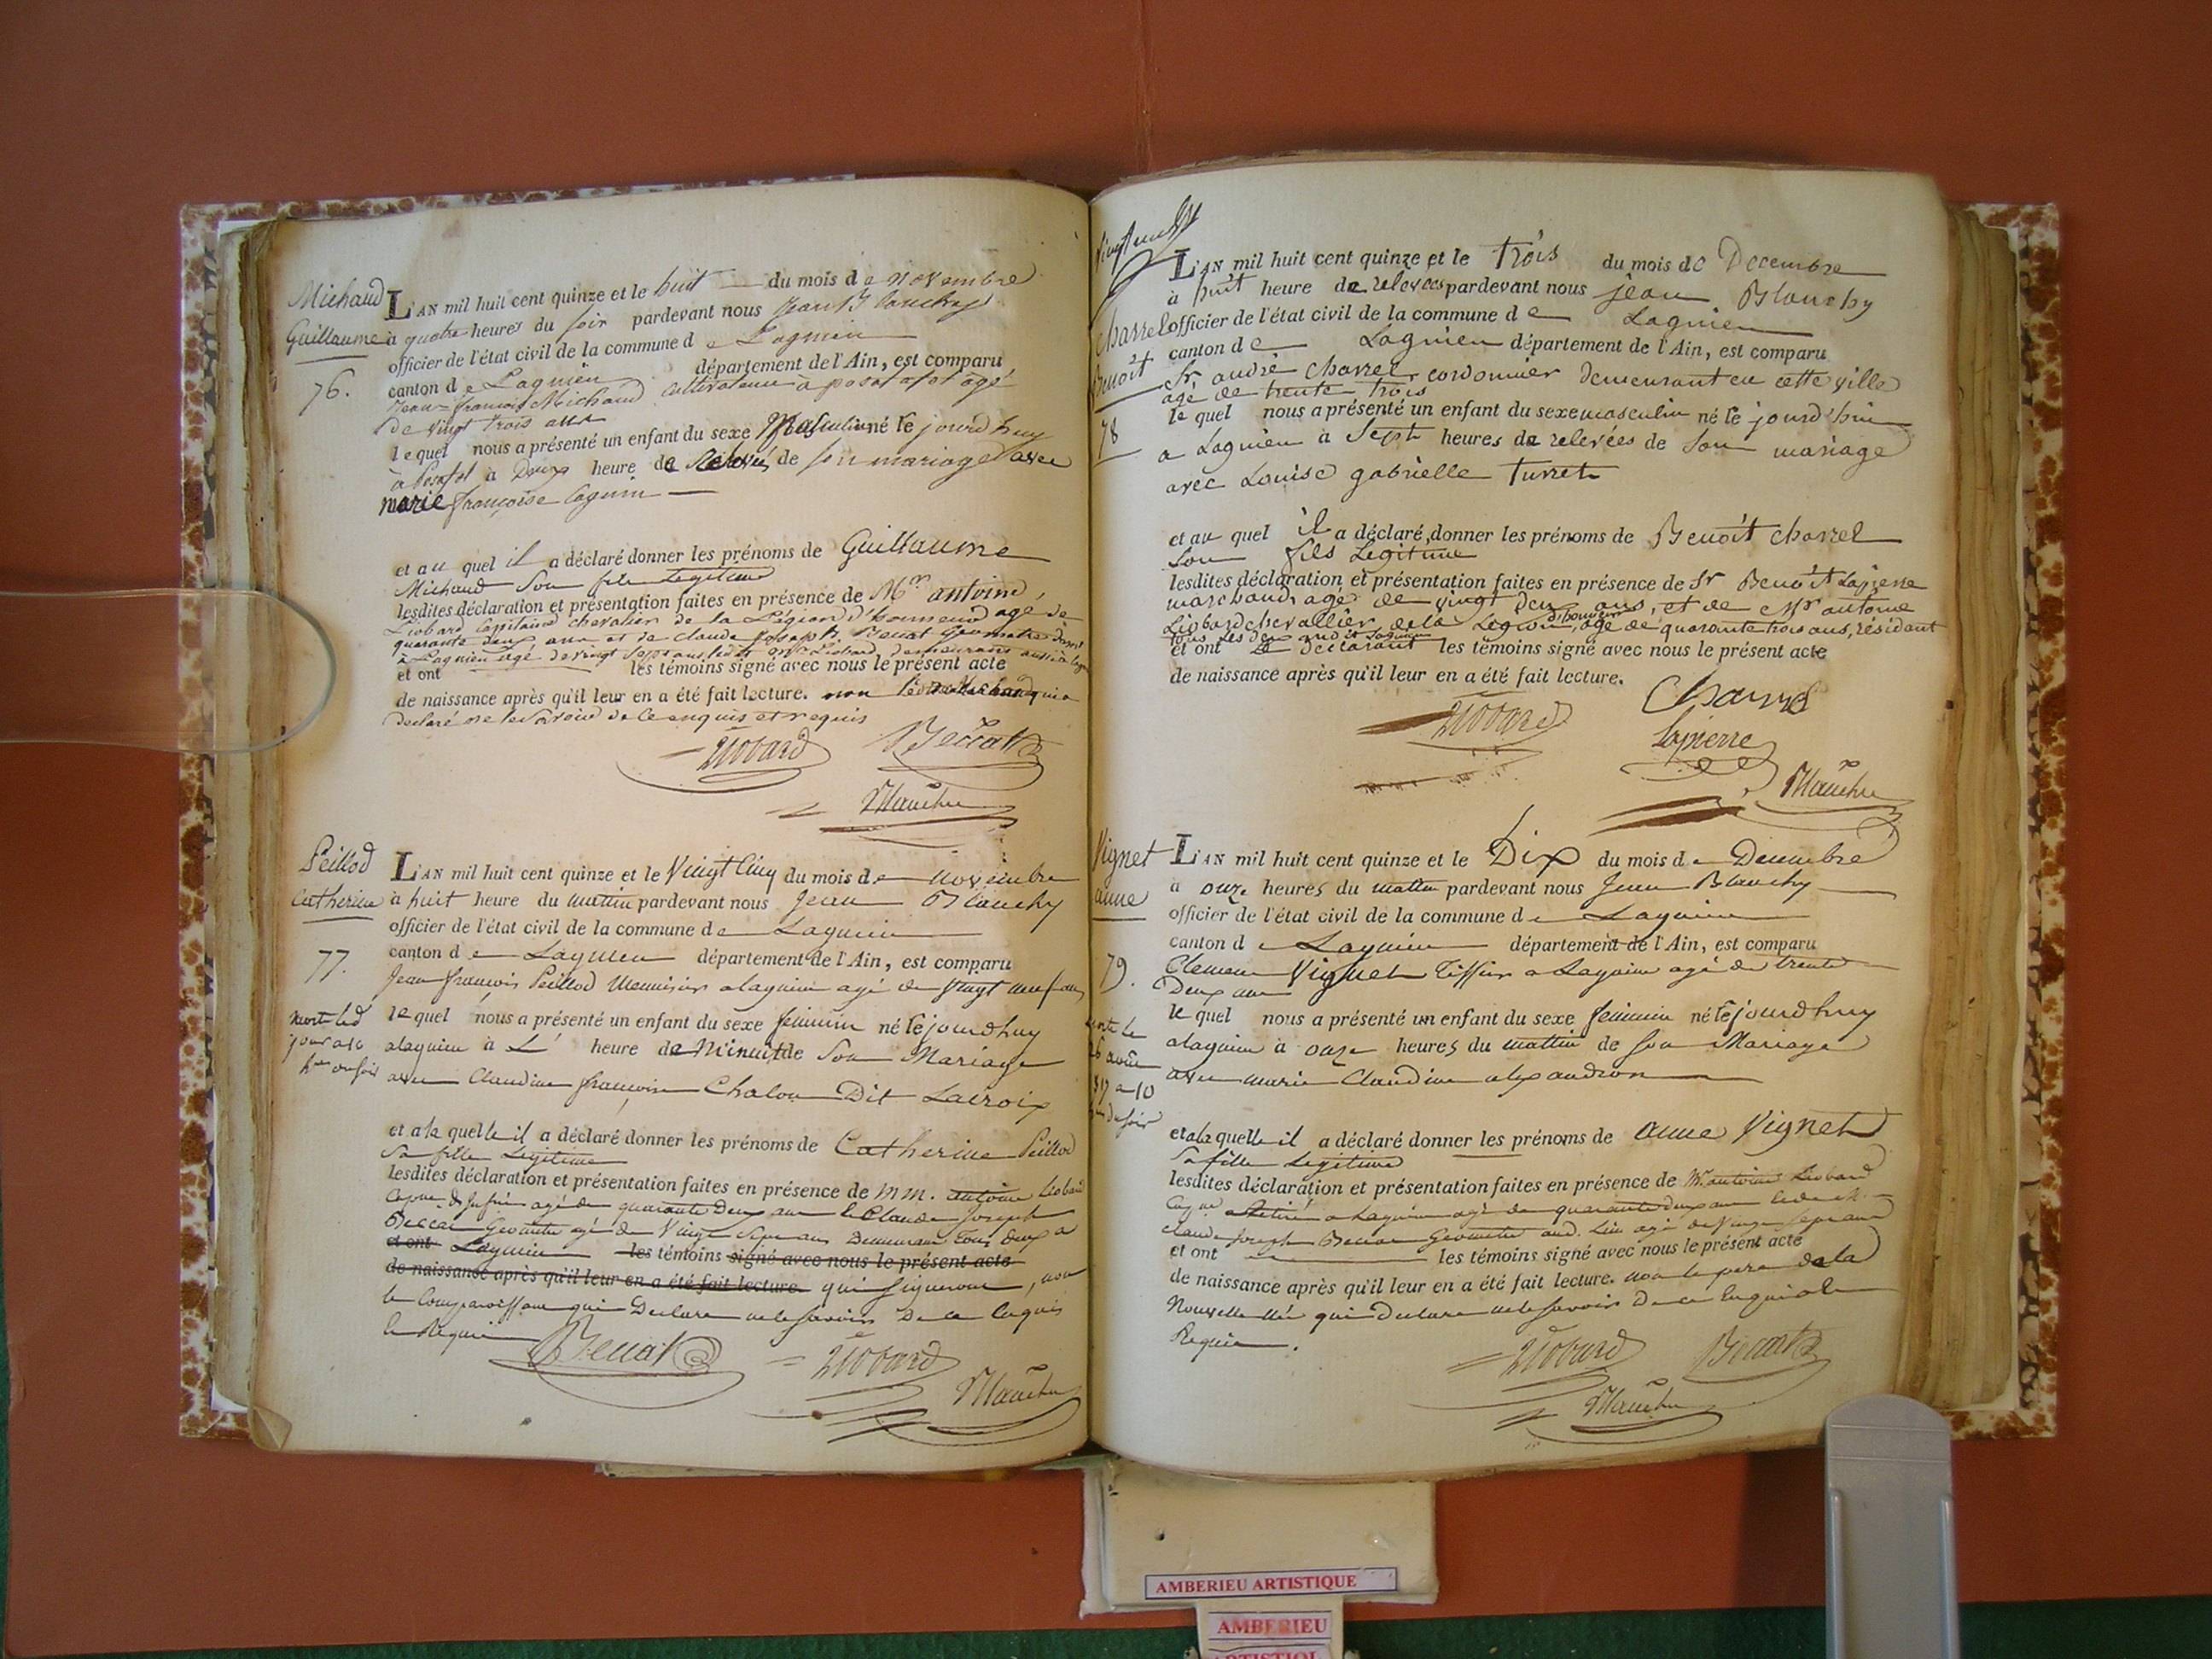 Michaud
Guillaume
76.
L'AN mil huit cent quinze et le huit du mois de novembre
à quatre heures du soir pardevant nous Jean Blanchy
officier de l'état civil de la commune de Lagnieu
canton de Lagnieu département de l'Ain, est comparu
Jean-francois Michaud cultivateur à posafol agé
de vingt trois ans
le quel nous a présenté un enfant du sexe Masculin né le jourdhuy
à Posafol à Deux heure de Relevés de son mariage avec
marie françoise
et au quel il a déclaré donner les prénoms de Guillaume
Michaud Son fils Legitime
lesdites déclaration et présentation faites en présence de Mr antoine
Liobard Capitaine chevalier de la Légion d'honneur agé de
quarante deux ans et de claude Joseph Beccat Geometre
à Lagnieu agé de vingt Sept ans demeurant aussi à
et ont les témoins signé avec nous le présent acte
de naissance après qu'il leur en a été fait lecture. non qui a
declaré ne le Savoir de ce enquis et requis
Liobard Beccat
Blanchy
Peillod
Catherine
77.
morte led
jour a
du soir
L'AN mil huit cent quinze et le Vingt Cinq du mois de novembre
à huit heure du mattin pardevant nous Jean Blanchy
officier de l'état civil de la commune de Lagnieu
canton de Lagnieu département de l'Ain, est comparu
Jean françois Peillod Menuisier a lagnieu agé de Vingt neuf ans
le quel nous a présenté un enfant du sexe feminin né le jourdhuy
alagnieu à L' heure de Minuit de Son Mariage
avec Claudine françoise Chalon Dit Lacroix
et a la quelle il a déclaré donner les prénoms de Catherine Peillod
Sa fille Legitime
lesdites déclaration et présentation faites en présence de MM. antoine Liobard
agé de quarante Deux ans & Claude Joseph
Beccat Geomètre agé de Vingt Sept ans Demeurant Tous Deux a
et ont Lagnieu les témoins signé avec nous le présent acte
de naissance après qu'il leur en a été fait lecture qui signeront, non
le Comparoissant qui Declare ne le savoir De ce Enquis
& Requis
Beccat Liobard
Blanchy
Charrel
Benoît
78
L'AN mil huit cent quinze et le trois du mois de Decembre
à huit heure de relevées pardevant nous jean Blanchy
officier de l'état civil de la commune de Lagnieu
canton de Lagnieu département de l'Ain, est comparu
Sr andré charrel cordonnier demeurant en cette ville
agé de trente trois
le quel nous a présenté un enfant du sexe masculin né le jourd'hui
a Lagnieu à Sept heures de relevées de Son mariage
avec Louise gabrielle Turret
et au quel il a déclaré donner les prénoms de Benoît charrel
Son fils Legitime
lesdites déclaration et présentation faites en présence de Sr Benoît Lapierre
marchand, agé de vingt deux ans, et de Mr antoine
Liobard chevallier de la Legion d'honneur, agé de quarante trois ans, résidant
tous les deux audit Lagnieu
et ont le declarant les témoins signé avec nous le présent acte
de naissance après qu'il leur en a été fait lecture.
Charrel
Liobard
Lapierre
Blanchy
Vignet
anne
79.
morte le
à 10
du soir
L'AN mil huit cent quinze et le Dix du mois de Decembre
à onze heures du mattin pardevant nous Jean Blanchy
officier de l'état civil de la commune de Lagnieu
canton de Lagnieu département de l'Ain, est comparu
Clement Vignet Tissier a Lagnieu agé de trente
Deux ans
le quel nous a présenté un enfant du sexe feminin né le jourdhuy
alagnieu à onze heures du mattin de son Mariage
avec marie Claudine alexandron
et a la quelle il a déclaré donner les prénoms de anne Vignet
Sa fille Legitime
lesdites déclaration et présentation faites en présence de Mr antoine Liobard
a Lagnieu agé de quarante deux ans
claude Joseph Beccat Geometre aud. Lieu agé de Vingt Sept ans
et ont les témoins signé avec nous le présent acte
de naissance après qu'il leur en a été fait lecture. non le pere de la
Nouvelle Née qui Declare ne le savoir De ce Enquis &
Requis.
Liobard Beccat
Blanchy
AMBERIEU ARTISTIQUE
AMBERIEU
ARTISTIQUE